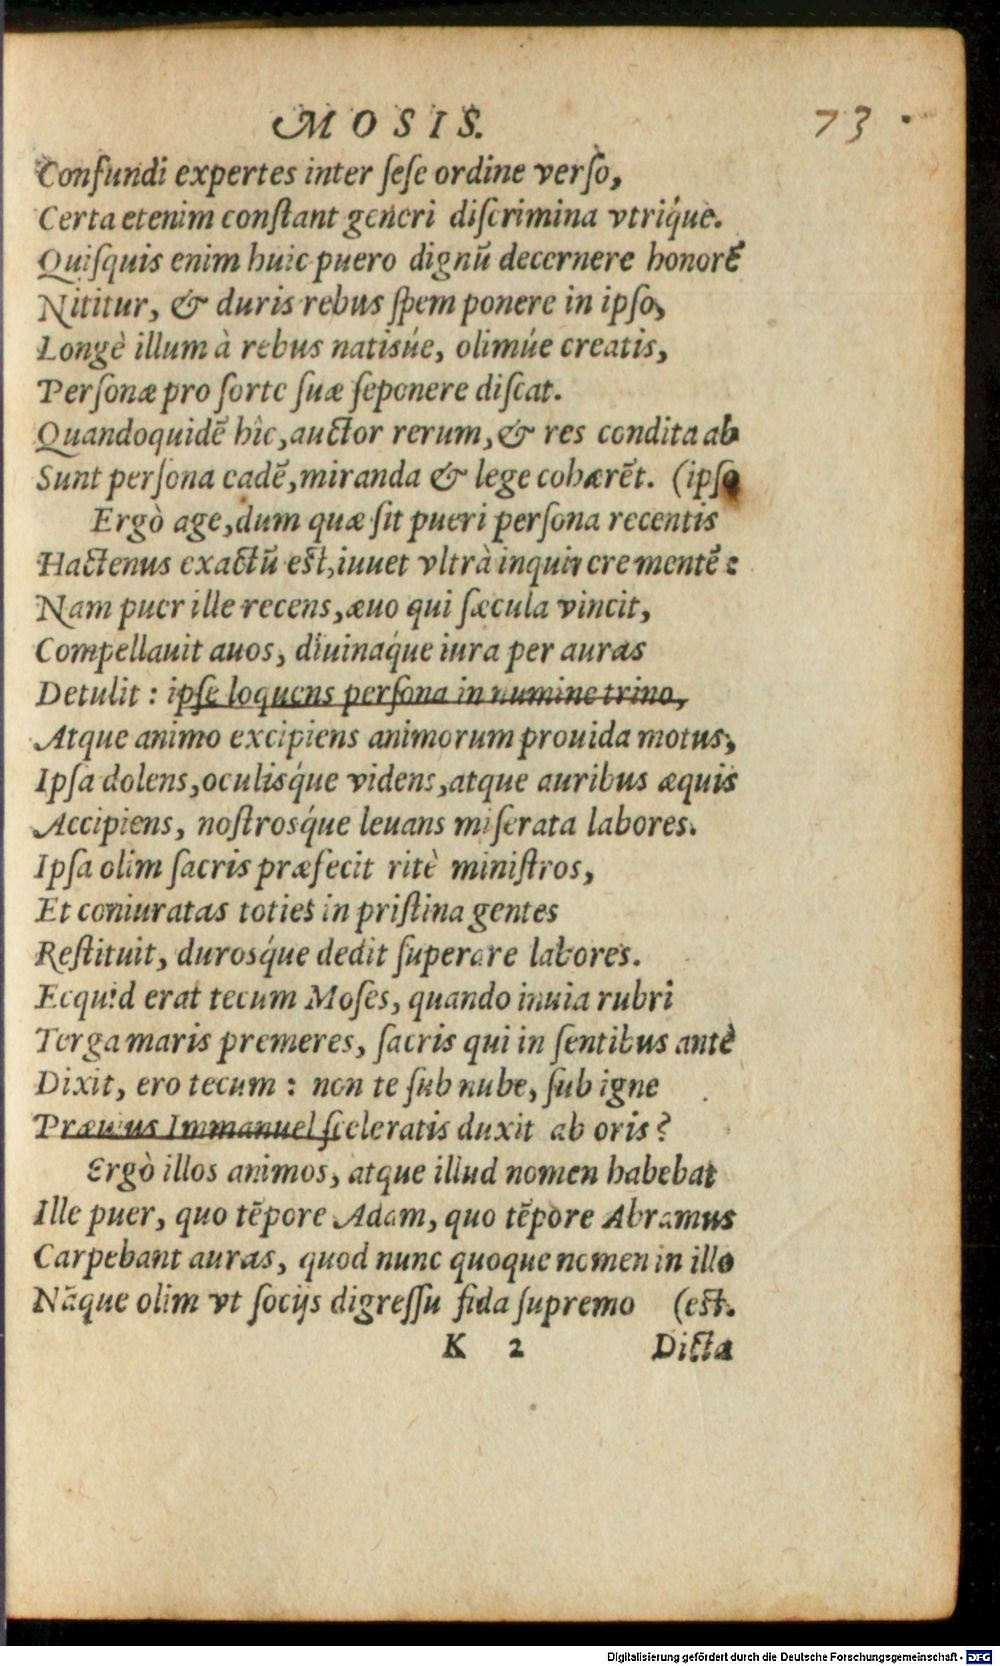 MOSIS. 73.
Confundi expertes inter ſeſe ordine verſo,
Certa etenim conſtant generi diſcrimina vtriq́ue.
Quiſquis enim huic puero dignũ decernere honorẽ
Nititur, & duris rebus ſpem ponere in ipſo,
Longè illum à rebus natisúe, olimúe creatis,
Perſonæ pro ſorte ſuæ ſeponere diſcat.
Quandoquidẽ hîc, auctor rerum, & res condita ab
Sunt perſona eadẽ, miranda & lege cohærẽt. (ipſo
Ergò age, dum quæ ſit pueri perſona recentis
Hactenus exactũ eſt, iuuet vltrà inquirere mentẽ:
Nam puer ille recens, æuo qui ſæcula vincit,
Compellauit auos, diuinaq́ue iura per auras
Detulit: ipſe loquens perſona in numine trino,
Atque animo excipiens animorum prouida motus,
Ipſa dolens, oculisq́ue videns, atque auribus æquis
Accipiens, noſtrosq́ue leuans miſerata labores.
Ipſa olim ſacris præfecit ritè miniſtros,
Et coniuratas toties in priſtina gentes
Reſtituit, durosq́ue dedit ſuperare labores.
Ecquid erat tecum Moſes, quando inuia rubri
Terga maris premeres, ſacris qui in ſentibus antè
Dixit, ero tecum: non te ſub nube, ſub igne
Præuius Immanuel ſceleratis duxit ab oris?
Ergò illos animos, atque illud nomen habebat
Ille puer, quo tẽpore Adam, quo tẽpore Abramus
Carpebant auras, quod nunc quoque nomen in illo
Nãque olim vt ſocijs digreſſu fida ſupremo (eſt.
K 2 Dicta
Digitalisierung gefördert durch die Deutsche Forschungsgemeinschaft - DFG